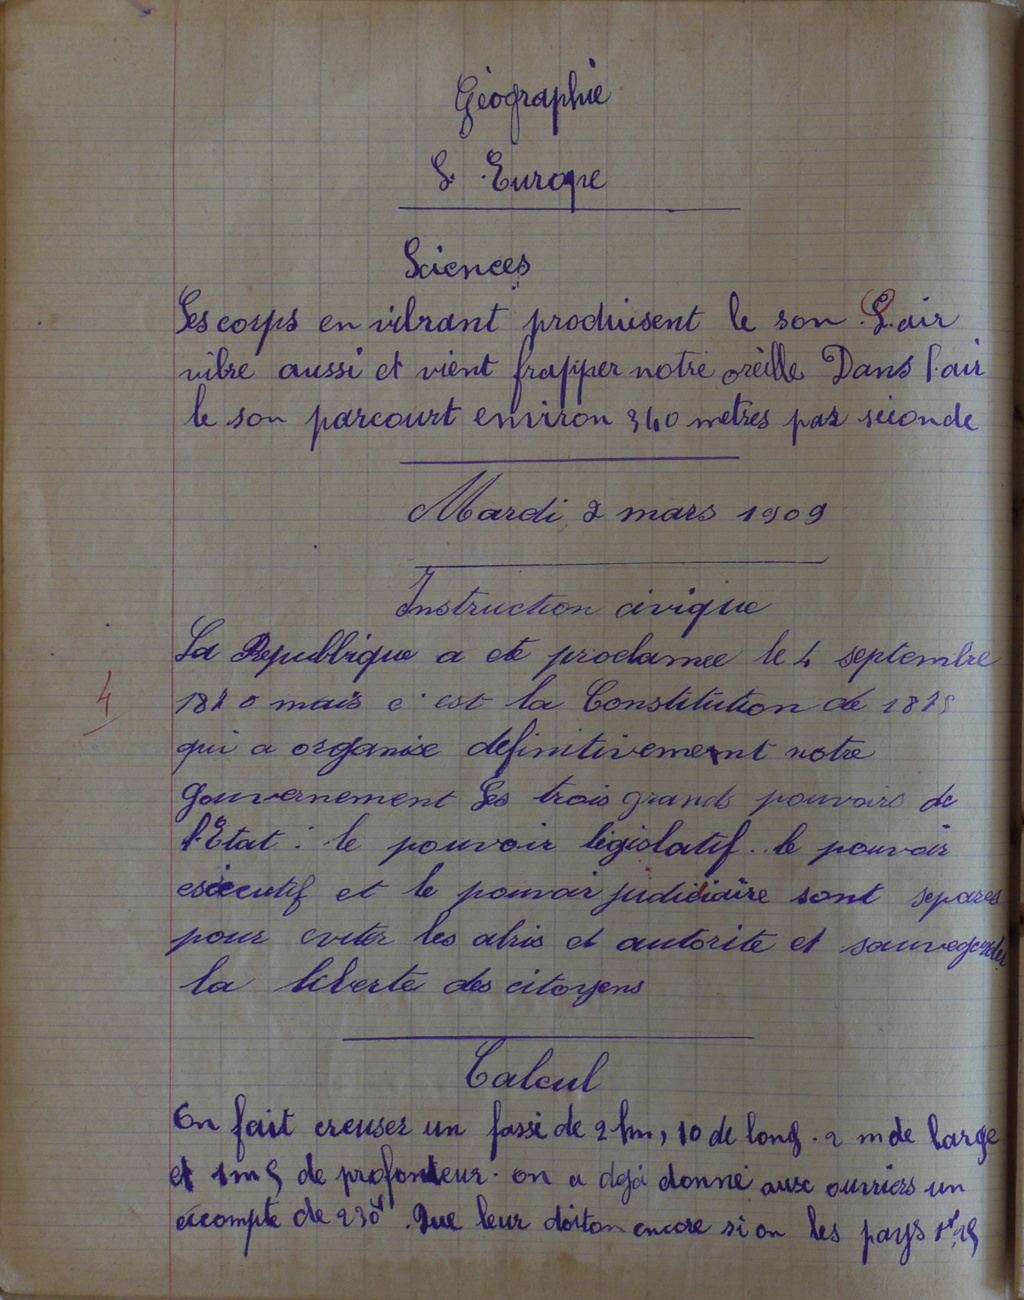 Géographie
L'Europe
Sciences
Les corps en vibrant produisent le son. L'air
vibre aussi et vient frapper notre oreille Dans l'air
le son parcourt environ 340 mètres par seconde
Mardi 2 mars 1909
Instruction civique
La République a été proclamee le 4 septembre
4
1870 mais c'est la Constitution de 1875
qui a organise definitivement notre
gouvernement Les trois grands pouvoirs de
l'Etat : le pouvoir législatif. le pouvoir
exécutif et le pouvoir judiciaire sont separes
pour eviter les abus et autorite et sauvegarder
la liberte des citoyens
Calcul
On fait creuser un fossé de 2 km, 10 de long. 2 m de large
et 1m5 de profondeur. on a dejà donné aux ouvriers un
acompte de 230f. Que leur doiton encore si on les pays 1f,25